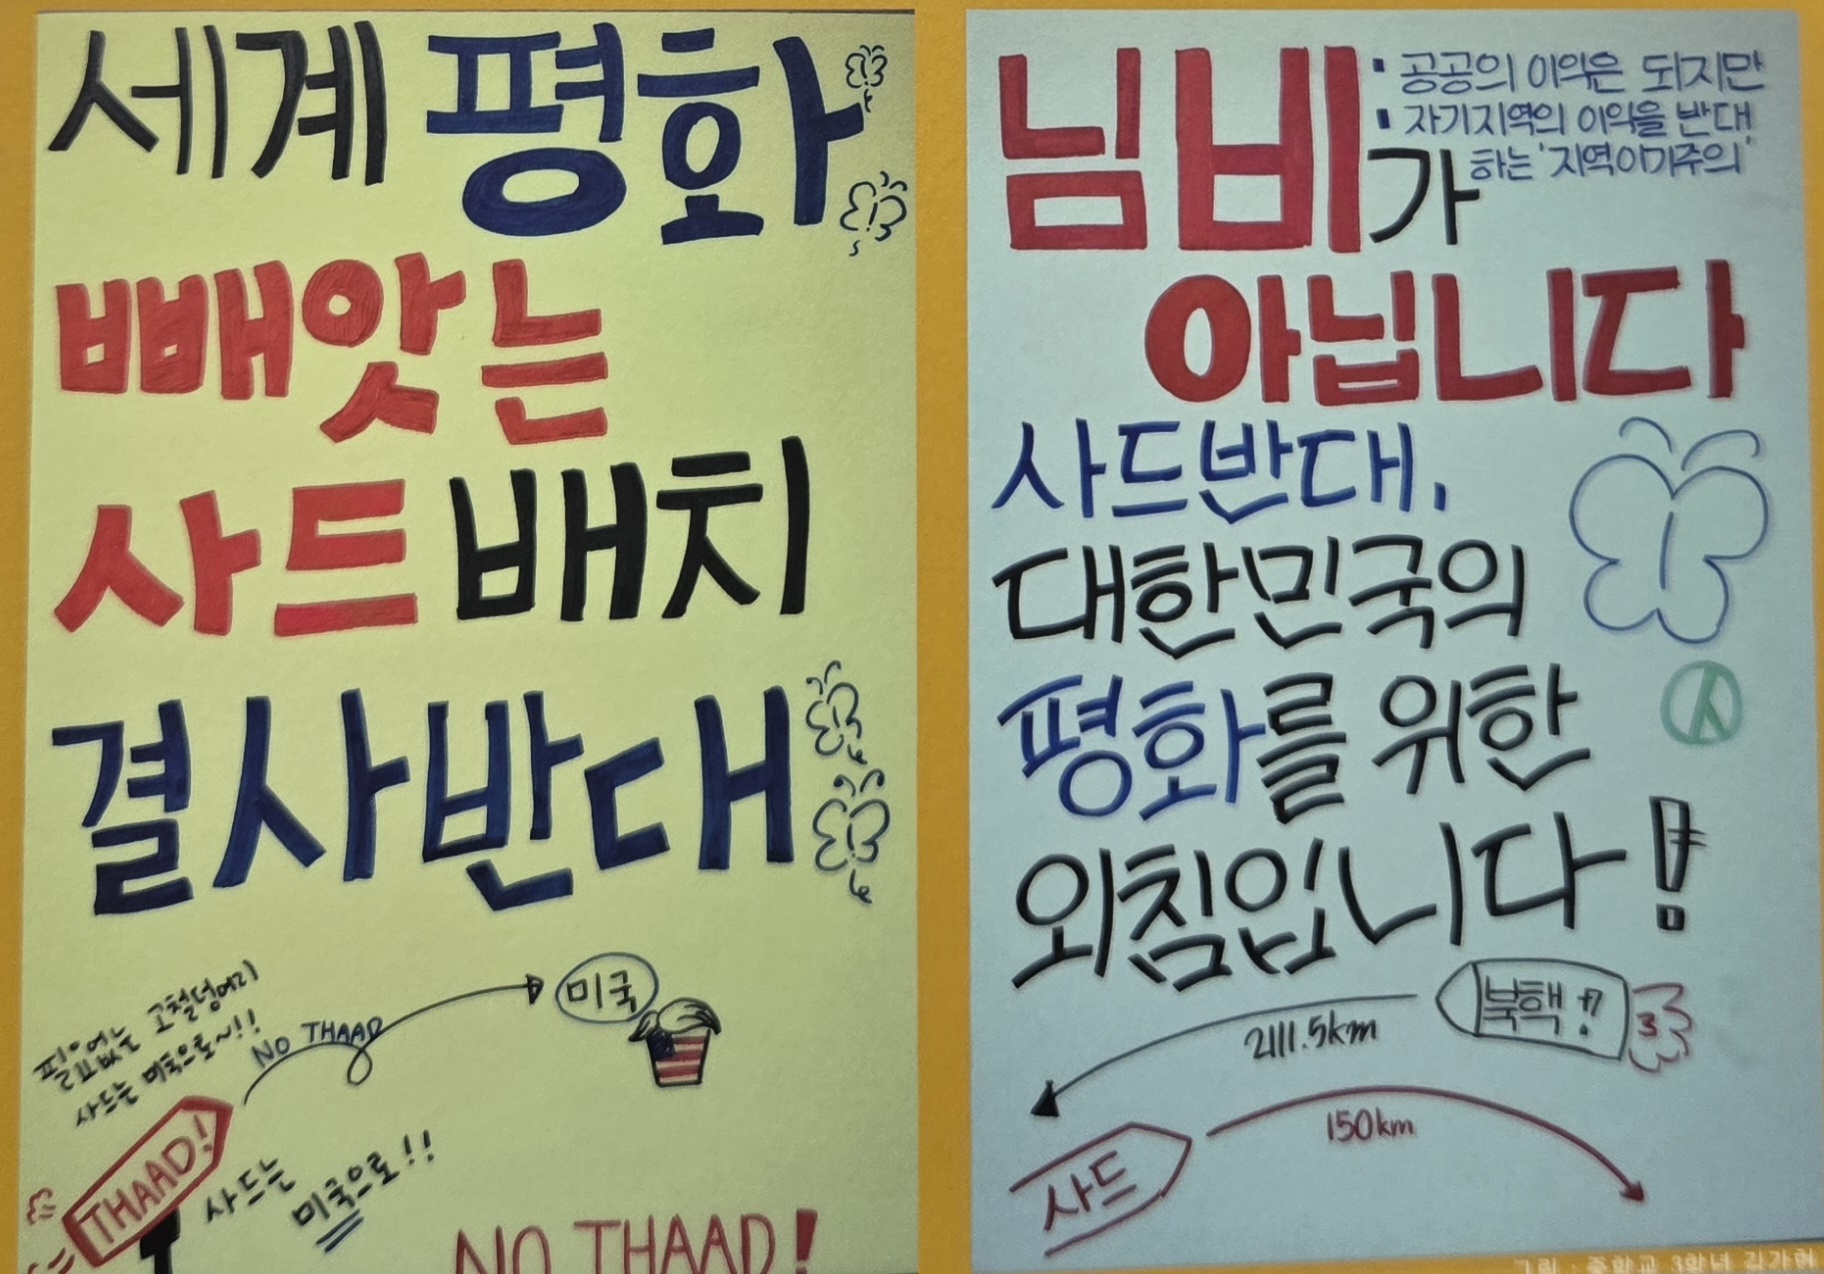 세계 평화
빼앗는
사드 배치
결사반대
필요없는 고철덩어리
사드는 미국으로~!!
NO THAAD
미국
THAAD!
사드는
미국으로!!
NO THAAD!
님비가
· 공공의 이익은 되지만
· 자기지역의 이익을 반대
하는 '지역이기주의'
아닙니다
사드반대,
대한민국의
평화를 위한
외침입니다!
북핵!?
2111.5km
150km
사드
그림 : 중학교 3학년 김가현